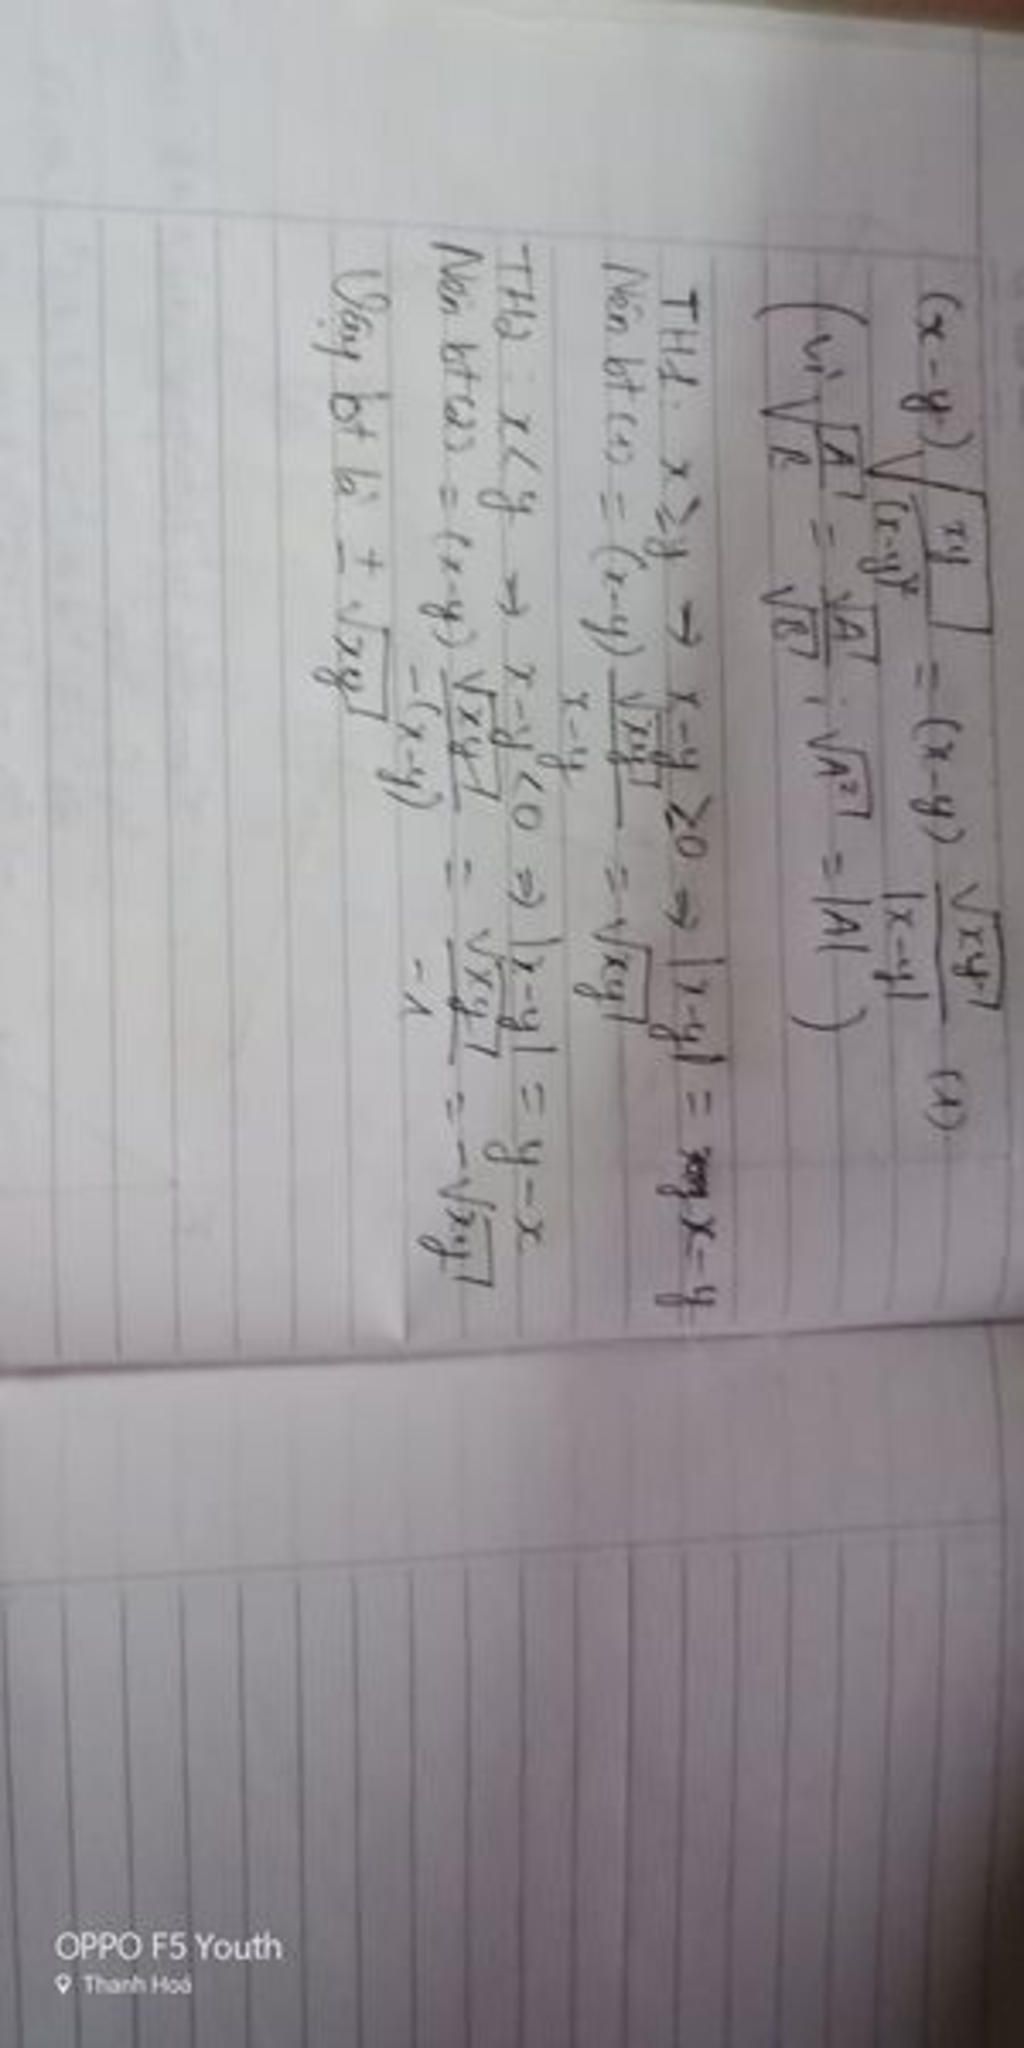 (x-y) √(xy/(x-y)²) = (x-y) √xy/|x-y| (1)
(Vì √(A/B) = √A/√B ; √A² = |A|)
TH1: x ≥ y → x-y ≥ 0 → |x-y| = x-y
Nên bt (1) = (x-y) √xy/(x-y) = √xy
TH2: x < y → x-y < 0 → |x-y| = y-x
Nên bt (1) = (x-y) √xy/-(x-y) = √xy/-1 = -√xy
Vậy bt là ± √xy
OPPO F5 Youth
Thanh Hoá